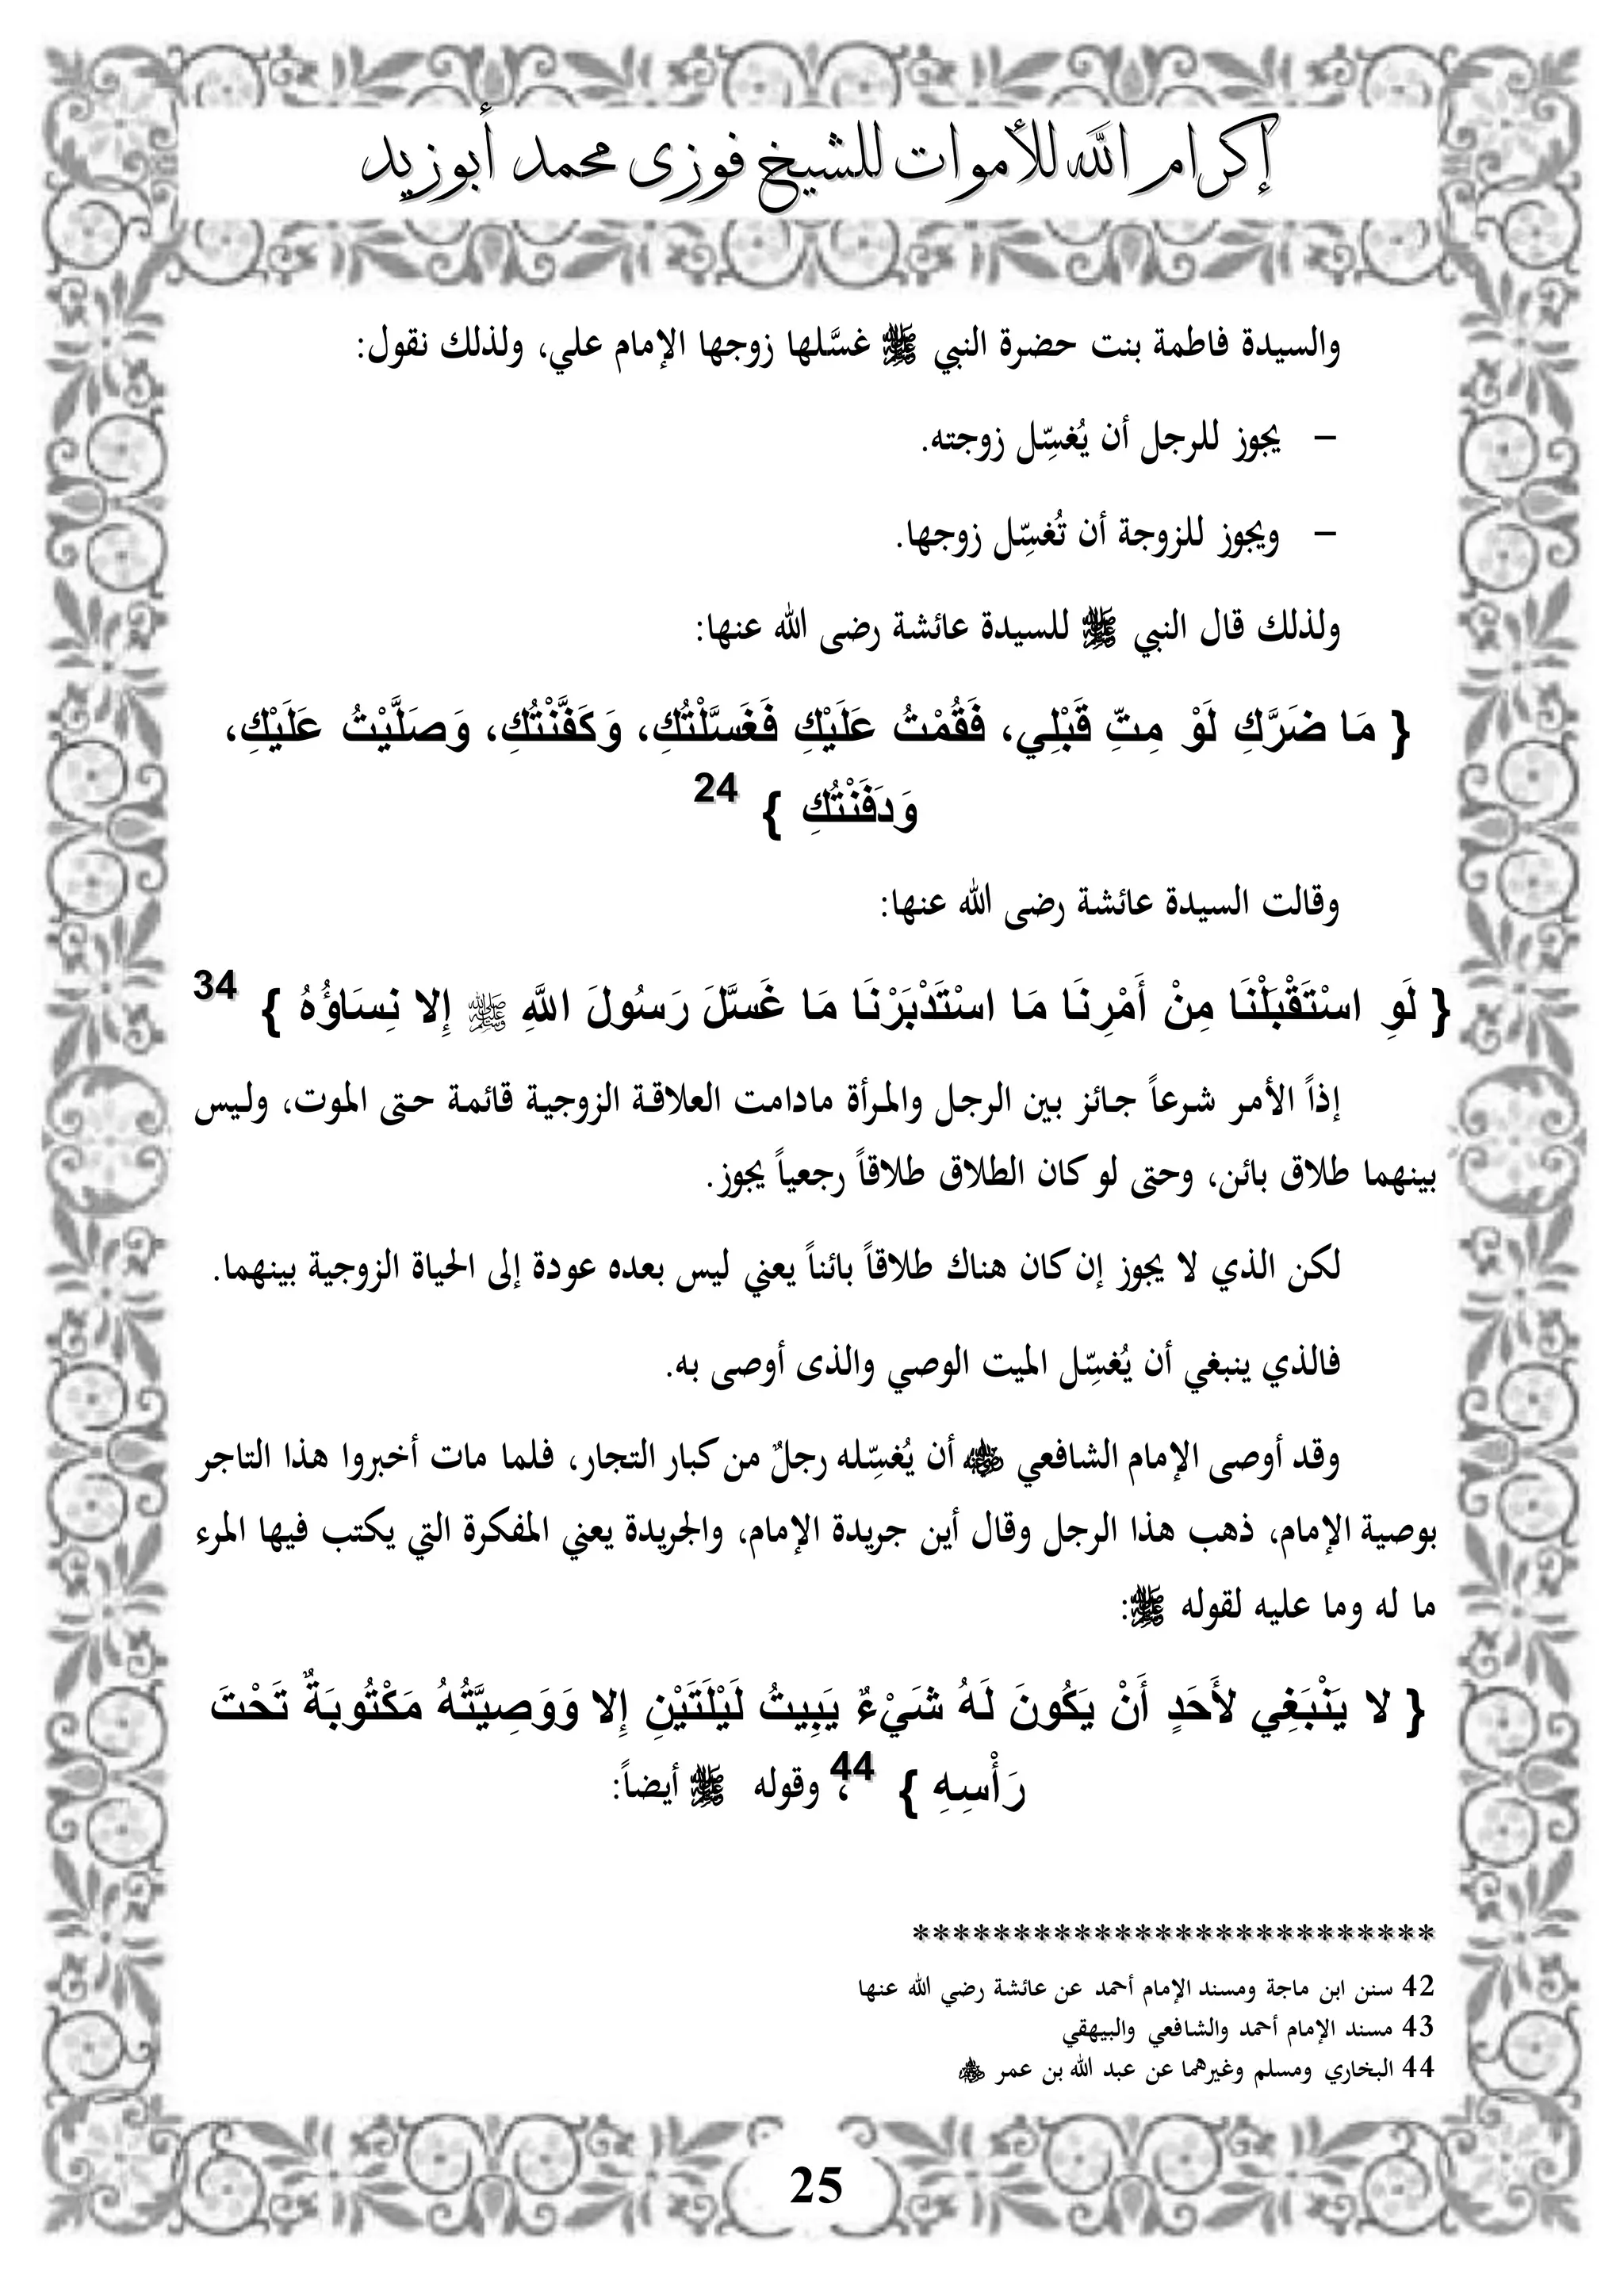 إكرام الله للأموات للشيخ فوزى محمد أبوزيد
والسيدة فاطمة بنت حضرة النبي ﷺ غسَّلها زوجها الإمام علي، ولذلك نقول:
- يجوز للرجل أن يُغسِّل زوجته.
- ويجوز للزوجة أن تُغسِّل زوجها.
ولذلك قال النبي ﷺ للسيدة عائشة رضى الله عنها:
{ مَا ضَرَّكِ لَوْ مِتِّ قَبْلِي، فَقُمْتُ عَلَيْكِ فَغَسَّلْتُكِ، وَكَفَّنْتُكِ، وَصَلَّيْتُ عَلَيْكِ،
وَدَفَنْتُكِ } 24
وقالت السيدة عائشة رضى الله عنها:
{ لَوِ اسْتَقْبَلْنَا مِنْ أَمْرِنَا مَا اسْتَدْبَرْنَا مَا غَسَّلَ رَسُولَ اللَّهِ ﷺ إِلا نِسَاؤُهُ } 34
إذاً الأمر شرعاً جائز بين الرجل والمرأة مادامت العلاقة الزوجية قائمة حتى الموت، وليس
بينهما طلاق بائن، وحتى لو كان الطلاق طلاقاً رجعياً يجوز.
لكن الذي لا يجوز إن كان هناك طلاقاً بائناً يعني ليس بعده عودة إلى الحياة الزوجية بينهما.
فالذي ينبغي أن يُغسِّل الميت الوصي والذى أوصى به.
وقد أوصى الإمام الشافعي ﷺ أن يُغسِّله رجلٌ من كبار التجار، فلما مات أخبروا هذا التاجر
بوصية الإمام، ذهب هذا الرجل وقال أين جريدة الإمام، والجريدة يعني المفكرة التي يكتب فيها المرء
ما له وما عليه لقوله ﷺ:
{ لا يَنْبَغِي لأَحَدٍ أَنْ يَكُونَ لَهُ شَيْءٌ يَبِيتُ لَيْلَتَيْنِ إِلا وَوَصِيَّتُهُ مَكْتُوبَةٌ تَحْتَ
رَأْسِهِ } 44، وقوله ﷺ أيضاً:
**************************
42 سنن ابن ماجة ومسند الإمام أحمد عن عائشة رضي الله عنها
43 مسند الإمام أحمد والشافعي والبيهقي
44 البخاري ومسلم وغيرهما عن عبد الله بن عمر
25